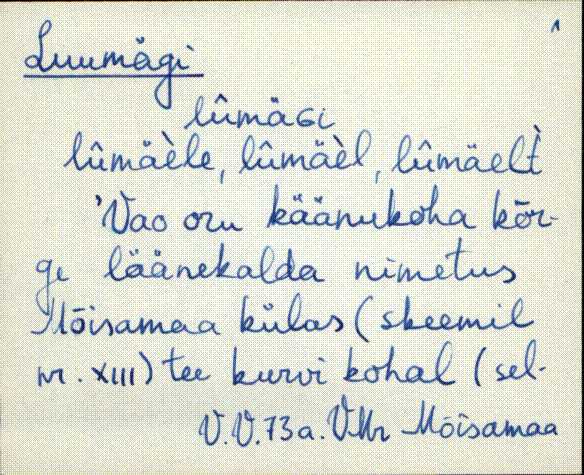 1
Luumägi
lûmäGi
lûmäèle, lûmäèl, lûmäelt̀
'Vao oru käänukoha kõr-
ge läänekalda nimetus
Mõisamaa külas (skeemil
nr. XIII) tee kurvi kohal (sel-
V.V. 73 a. VMr Mõisamaa